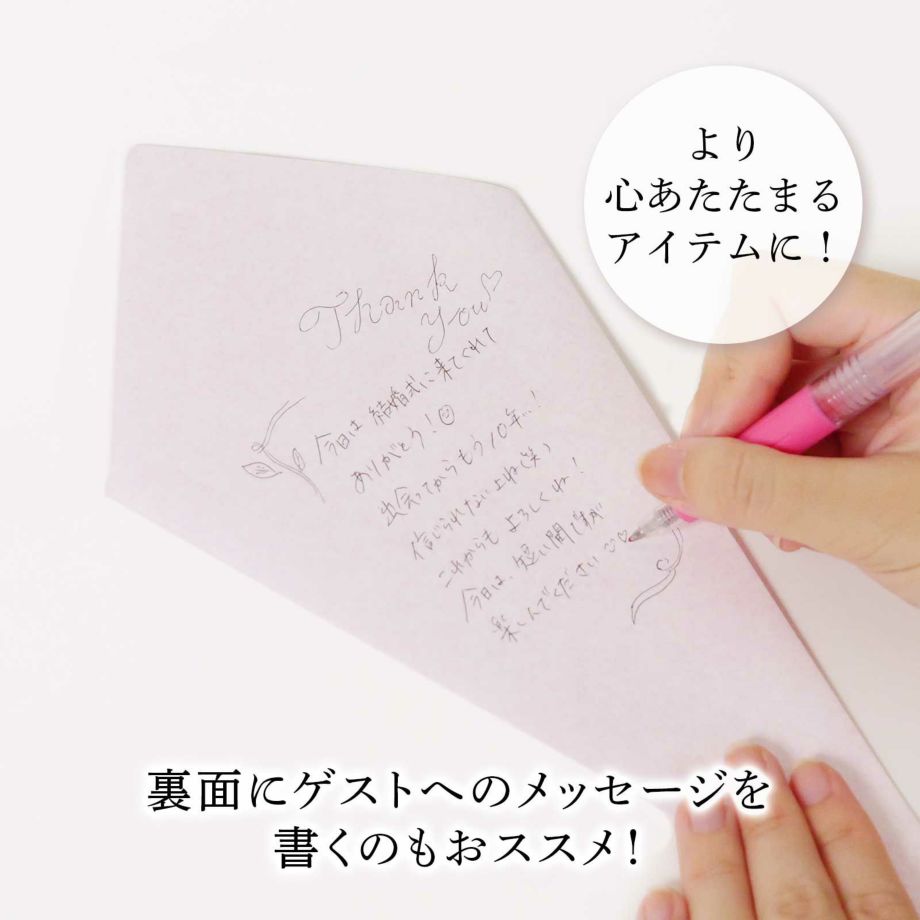 より
心あたたまる
アイテムに！
Thank
you♡
今日は結婚式に来てくれて
ありがとう！☺
出会ってからもう10年…！
信じられないよね(笑)
これからもよろしくね！
今日は、短い間ですが
楽しんでください♡
裏面にゲストへのメッセージを
書くのもおススメ！